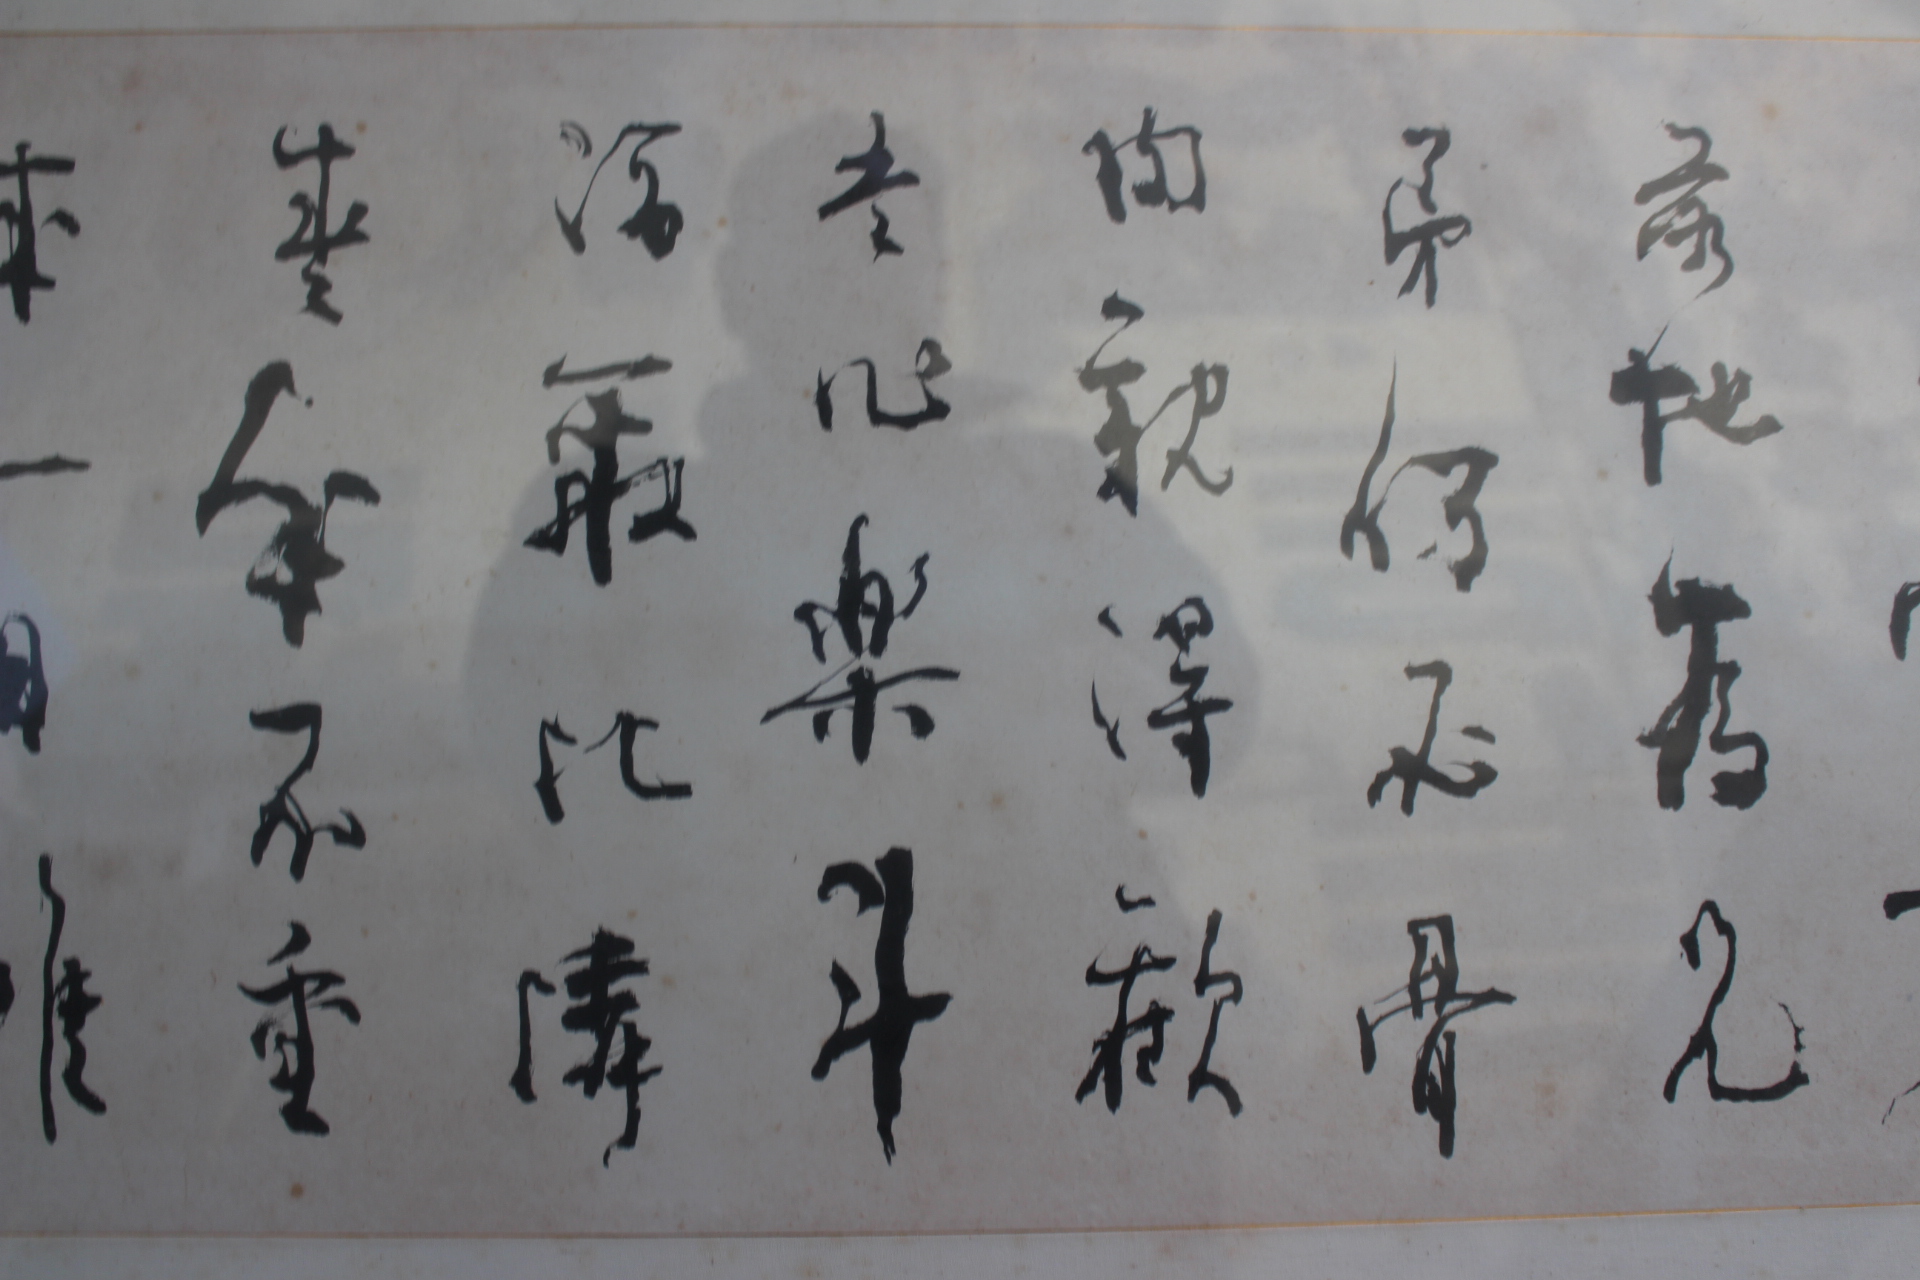 落地為兄
弟何必骨
肉親得歡
當作樂斗
酒聚比隣
盛年不重
來一日難